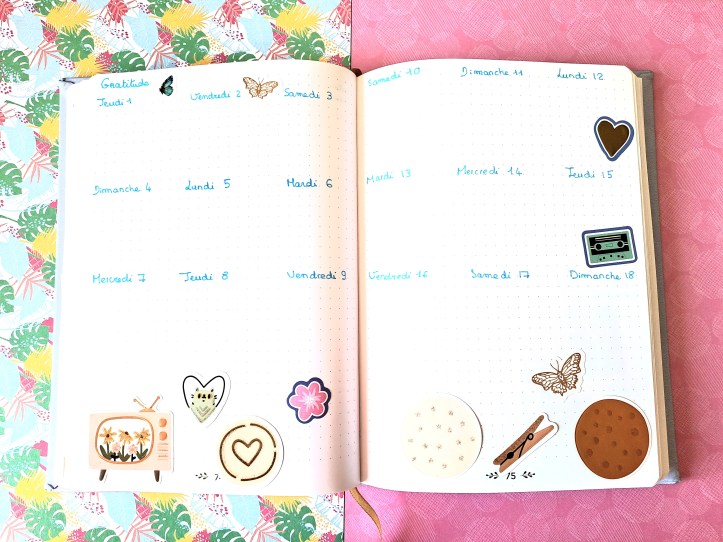 Gratitude
Jeudi 1 Vendredi 2 Samedi 3
Dimanche 4 Lundi 5 Mardi 6
Mercredi 7 Jeudi 8 Vendredi 9
Samedi 10 Dimanche 11 Lundi 12
Mardi 13 Mercredi 14 Jeudi 15
Vendredi 16 Samedi 17 Dimanche 18